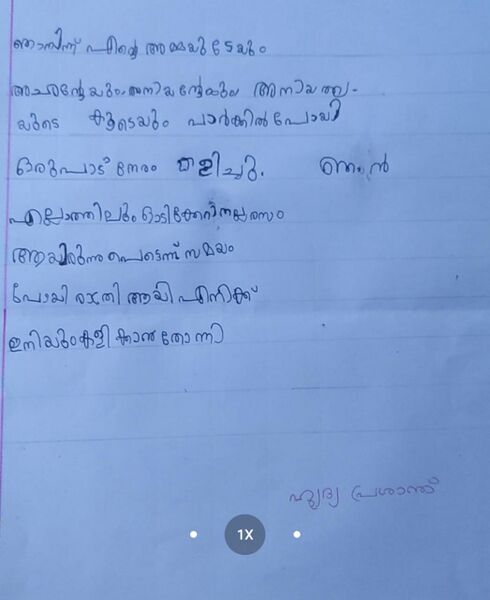 ഞാനിന്ന് എന്റെ അമ്മയുടേയും
അച്ഛന്റേയും അനിയന്റേയും അനിയത്തി-
യുടെ കൂടെയും പാർക്കിൽ പോയി
ഒരുപാട് നേരം കളിച്ചു. ഞാൻ
എല്ലാത്തിലും ഓടിക്കേറി നല്ല രസം
ആയിരുന്നു പെട്ടെന്ന് സമയം
പോയി രാത്രി ആയി എനിക്ക്
ഇനിയും കളിക്കാൻ തോന്നി
ഹൃദ്യ പ്രശാന്ത്
1X